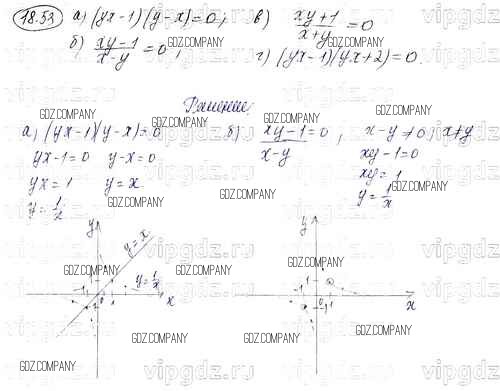 18.53 а) (yx-1)(y-x)=0; в) xy+1/x+y=0
б) xy-1/x-y=0; г) (yx-1)(yx+2)=0.
GDZ.COMPANY GDZ.COMPANY
Решение.
GDZ.COMPANY GDZ.COMPANY
а) (yx-1)(y-x)=0 б) xy-1/x-y=0, x-y≠0; x≠y
yx-1=0 y-x=0 xy-1=0
yx=1 y=x xy=1
y=1/x y=1/x
GDZ.COMPANY GDZ.COMPANY GDZ.COMPANY
y y=x y
GDZ.COMPANY GDZ.COMPANY GDZ.COMPANY
-1 1 y=1/x x -1 0 1 x
GDZ.COMPANY GDZ.COMPANY GDZ.COMPANY
GDZ.COMPANY
vipgdz.ru